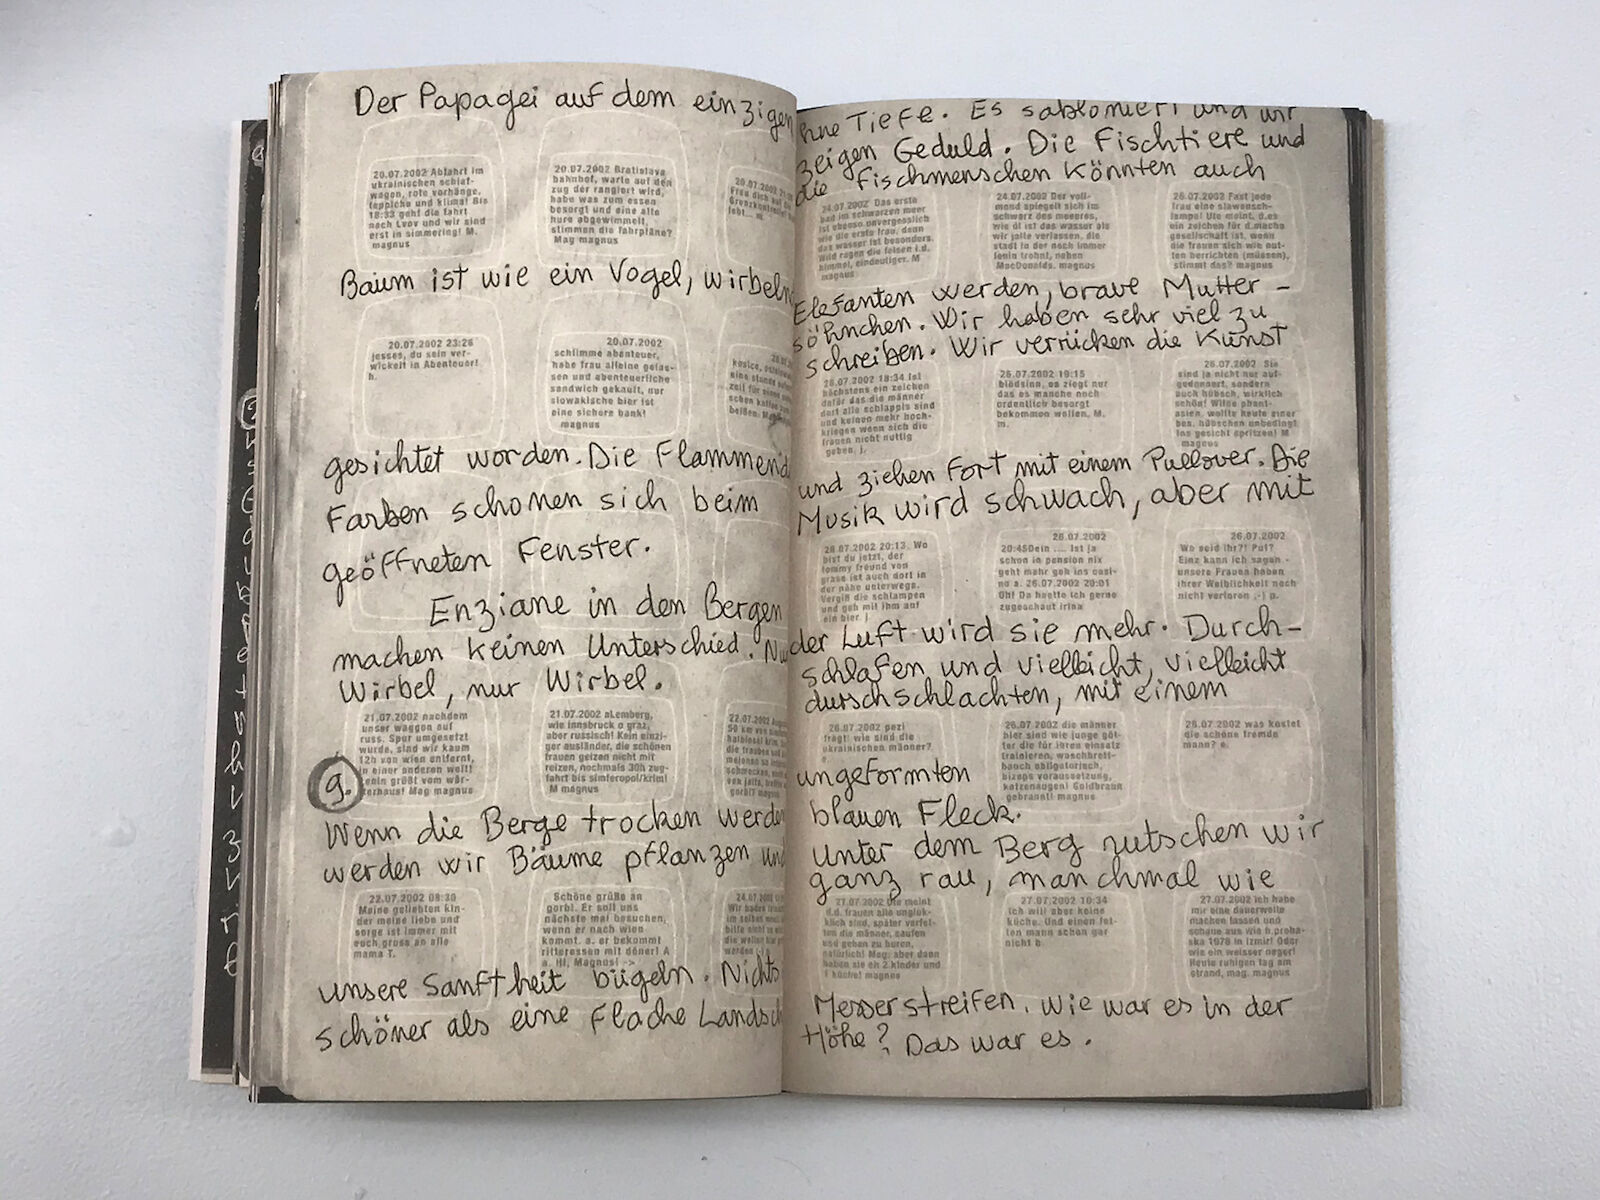 Der Papagei auf dem einzigen
20.07.2002 Abfahrt im
ukrainischen schlaf-
wagen, rote vorhänge,
teppiche und klima! Bis
18:33 geht die fahrt
nach Lvov und wir sind
erst in simmering! M.
magnus
20.07.2002 Bratislava
bahnhof, warte auf den
zug der rangiert wird,
habe was zum essen
besorgt und eine alte
hure abgewimmelt,
stimmen die fahrpläne?
Mag magnus
20.07.2002
Frau dich auf
Grenzkontrolle
lebt... m.
Baum ist wie ein Vogel, wirbeln
20.07.2002 23:26
jesses, du sein ver-
wickelt in Abenteuer!
h.
20.07.2002
schlimme abenteuer,
habe frau alleine gelas-
sen und abenteuerliche
sandwich gekauft, nur
slowakische bier ist
eine sichere bank!
magnus
kosice,
eine stunde
zeit für einen
schen
beißen.
gesichtet worden. Die Flammend
Farben schonen sich beim
geöffneten Fenster.
Enziane in den Bergen
machen keinen Unterschied. Nu
Wirbel, nur Wirbel.
21.07.2002 nachdem
unser waggon auf
russ. Spur umgesetzt
wurde, sind wir kaum
12h von wien entfernt,
in einer anderen welt!
lenin grüßt vom wär-
terhaus! Mag magnus
21.07.2002 aLemberg,
wie innsbruck o graz,
aber russisch! Kein einzi-
ger ausländer, die schönen
frauen geizen nicht mit
reizen, nochmals 30h zug-
fahrt bis simferopol/krim!
M magnus
22.07.2002
50 km von
halbinsel krim,
die trauben
melonen so
schmecken,
von jalta,
gorbi? magnus
9.
Wenn die Berge trocken werde
werden wir Bäume pflanzen und
22.07.2002 08:30
Meine geliebten kin-
der meine liebe und
sorge ist immer mit
euch.gruss an alle
mama T.
Schöne grüße an
gorbi. Er soll uns
nächste mal besuchen,
wenn er nach wien
kommt. a. er bekommt
ritteressen mit döner! A
a. Hi, Magnus! ->
24.07.2002
Wir baden
im selben
bitte nicht
die wellen
werden
unsere Sanftheit bügeln. Nichts
schöner als eine flache Landsch
hne Tiefe. Es sabloniert und wir
zeigen Geduld. Die Fischtiere und
die Fischmenschen könnten auch
24.07.2002 Das erste
bad im schwarzen meer
ist ebenso unvergesslich
wie die erste frau, denn
das wasser ist besonders.
Wild ragen die felsen i.d.
himmel, eindeutiger. M
magnus
24.07.2002 Der voll-
mond spiegelt sich im
schwarz des meeres,
wie öl ist das wasser als
wir jalta verlassen, die
stadt in der noch immer
lenin trohnt, neben
MacDonalds. magnus
26.07.2002 Fast jede
frau eine slawensch-
lampe! Ute meint, d.es
ein zeichen für d.macho
gesellschaft ist, wenn
die frauen sich wie nut-
ten herrichten (müssen),
stimmt das? magnus
Elefanten werden, brave Mutter-
söhnchen. Wir haben sehr viel zu
schreiben. Wir verrücken die Kunst
26.07.2002 18:34 Ist
höchstens ein zeichen
dafür das die männer
dort alle schlappis sind
und keinen mehr hoch-
kriegen wenn sich die
frauen nicht nuttig
geben. j.
26.07.2002 19:15
blödsinn, es ziegt nur
das es manche noch
ordentlich besorgt
bekommen wollen. M.
m.
26.07.2002 Sie
sind ja nicht nur auf-
gedonnert, sondern
auch hübsch, wirklich
schön! Wilde phant-
asien, wollte heute einer
bes. hübschen unbedingt
ins gesicht spritzen! M
magnus
und ziehen fort mit einem Pullover. Die
Musik wird schwach, aber mit
26.07.2002 20:13. Wo
bist du jetzt, der
tommy freund von
grasse ist auch dort in
der nähe unterwegs.
Vergiß die schlampen
und geh mit ihm auf
ein bier. j
26.07.2002
20:45Dein .... Ist ja
schon in pension nix
geht mehr geh ins casi-
no a. 26.07.2002 20:01
Oh! Da haette ich gerne
zugeschaut irina
26.07.2002
Wo seid ihr?! Puf?
Einz kann ich sagen -
unsere Frauen haben
ihrer Weiblichkeit noch
nicht verloren ;-) p.
der Luft wird sie mehr. Durch-
schlafen und vielleicht, vielleicht
durschschlachten, mit einem
26.07.2002 pezi
frägt: wie sind die
ukrainischen männer?
26.07.2002 die männer
hier sind wie junge göt-
ter die für ihren einsatz
trainieren, waschbrett-
bauch obligatorisch,
bizeps voraussetzung,
katzenaugen! Goldbraun
gebrannt! magnus
26.07.2002 was kostet
die schöne fremde
mann? e.
ungeformten
blauen Fleck.
Unter dem Berg rutschen wir
ganz rau, manchmal wie
27.07.2002 Ute meint
d.d. frauen alle unglük-
klich sind, später verfet-
ten die männer, saufen
und gehen zu huren,
natürlich! Mag. aber dann
haben sie eh 2.kinder und
1 küche! magnus
27.07.2002 10:34
ich will aber keine
küche. Und einen fet-
ten mann schon gar
nicht b
27.07.2002 ich habe
mir eine dauerwelle
machen lassen und
schaue aus wie h.proha-
ska 1978 in izmir! Oder
wie ein weisser neger!
Heute ruhigen tag am
strand, mag. magnus
Messerstreifen. Wie war es in der
Höhe? Das war es.